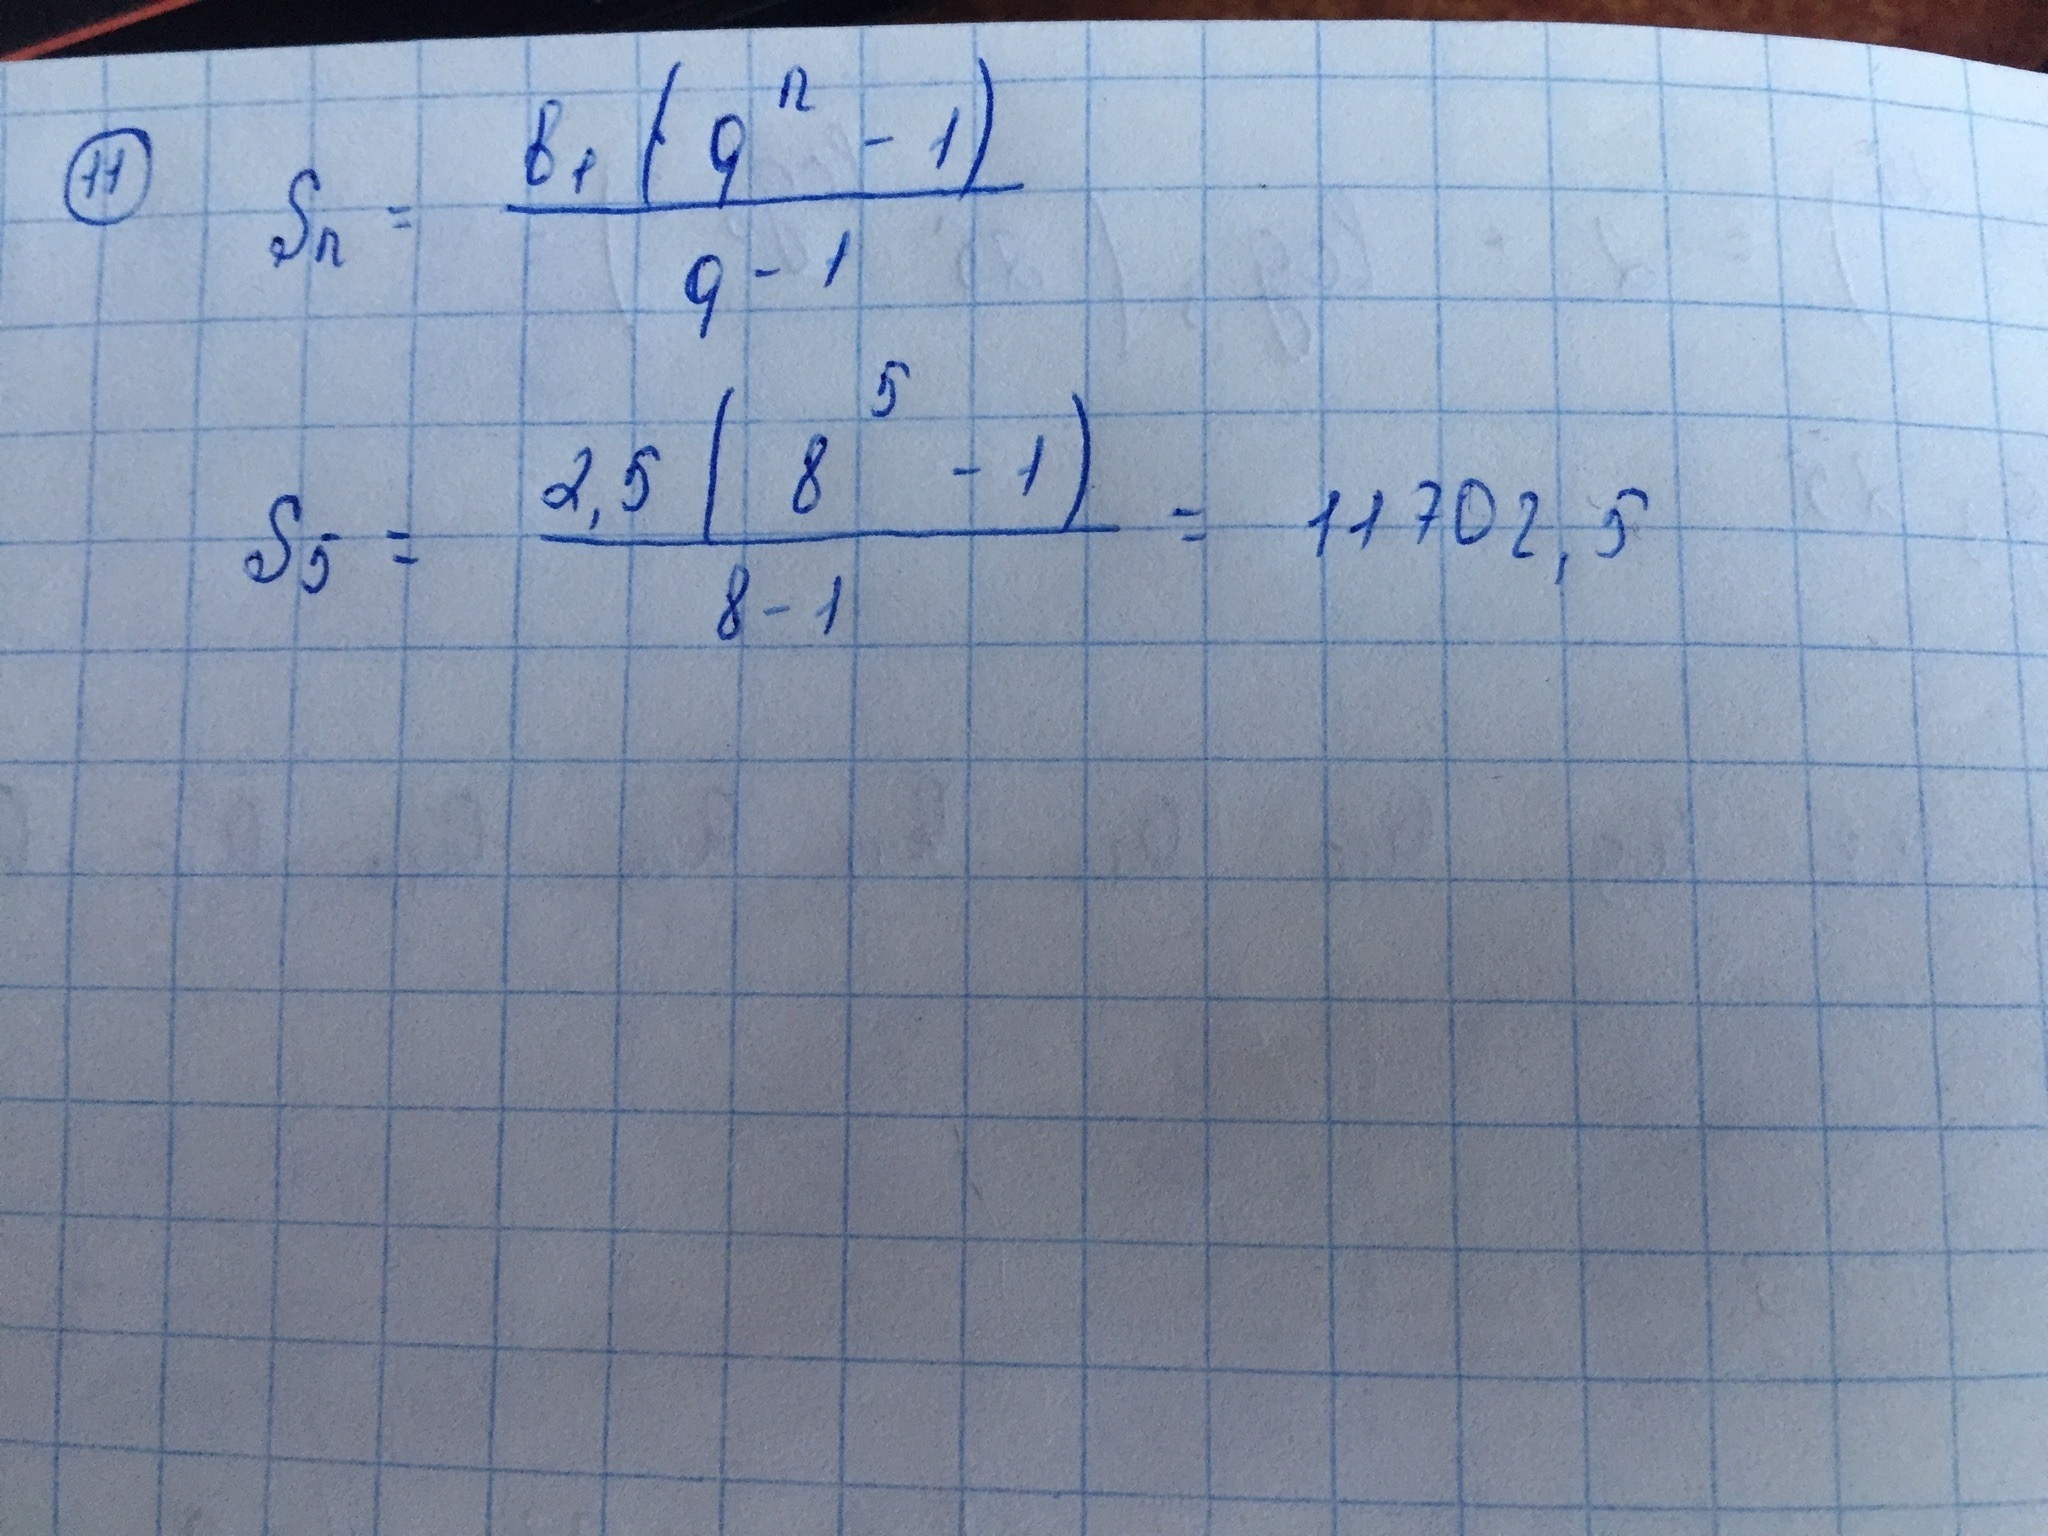 11 Sn = b1 (q^n - 1) / q - 1
S5 = 2,5 (8^5 - 1) / 8 - 1 = 11702,5